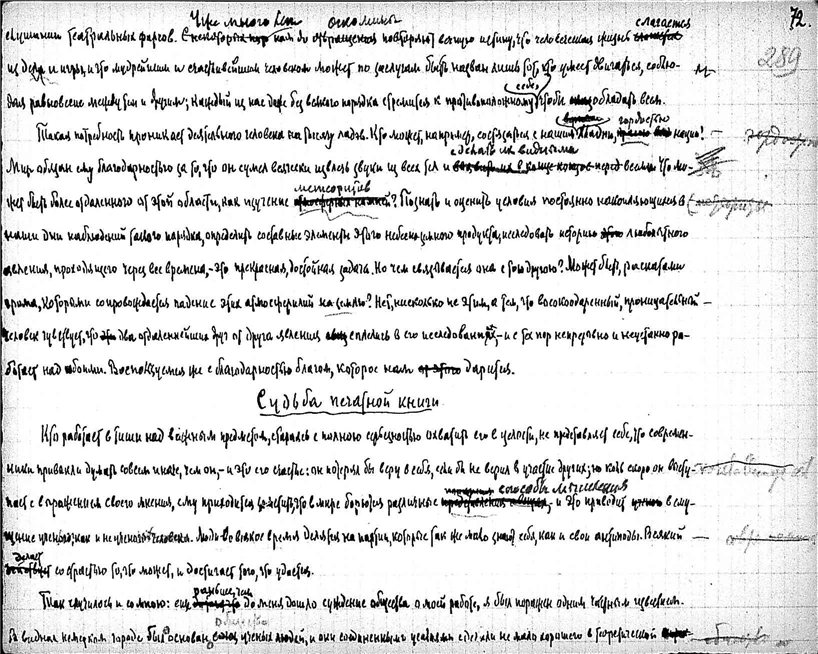 72.
289
Уже много лет
слушании театральных фарсов. нам до отвращения повторяют вечную истину, что человеческая жизнь слагается
из дела и игры, и что мудрейшим и счастливейшим человеком может по заслугам быть назван лишь тот, кто умеет двигаться, соблю-
дая равновесие между тем и другим; каждый из нас даже без всякого порядка стремится к противоположному себе, чтобы обладать всем.
Такая потребность проникает деятельного человека на тысячу ладов. Кто может, например, состязаться с нашим гордостью нации!
Мир обязан ему благодарностью за то, что он сумел всячески извлечь звуки из всех тел и сделать их видимыми. Что мо-
жет быть более отдаленного от этой области, как изучение метеоритов? Познать и оценить условия постоянно накопляющихся в
наши дни наблюдений такого порядка, определить составные элементы этого небесно-земного продукта, исследовать историю любопытного
явления, проходящего через все времена, - это прекрасная, достойная задача. Но чем связывается она с тою другою? Может быть, раскатами
грома, которыми сопровождается падение этих атмосферилий на землю? Нет, нисколько не этим, а тем, что высокоодаренный, проницательный
человек чувствует, что два отдаленнейших друг от друга явления сплелись в его исследованиях, - и с тех пор непрерывно и неустанно ра-
ботает над обоими. Воспользуемся же с благодарностью благом, которое нам дарится.
Судьба печатной книги
Кто работает в тиши над важным предметом, стараясь с полною серьезностью охватить его в целости, не представляет себе, что современ-
ники привыкли думать совсем иначе, чем он, - и это его счастье: он потерял бы веру в себя, если бы не верил в участие других; но коль скоро он высту-
пает с выражением своего мнения, ему приходится заметить, что в мире борются различные способы мышления, - и это приводит в сму-
щение ученого, как и не ученого человека. Люди во всякое время делятся на партии, которые так же мало знают себя, как и свои антиподы. Всякий
делает со страстью то, что может, и достигает того, что удается.
Так случилось и со мною: еще раньше, чем до меня дошло суждение общества о моей работе, я был поражен одним частным известием.
В видном немецком городе было основано общество ученых людей, и они соединенными усилиями сделали не мало хорошего в теоретической